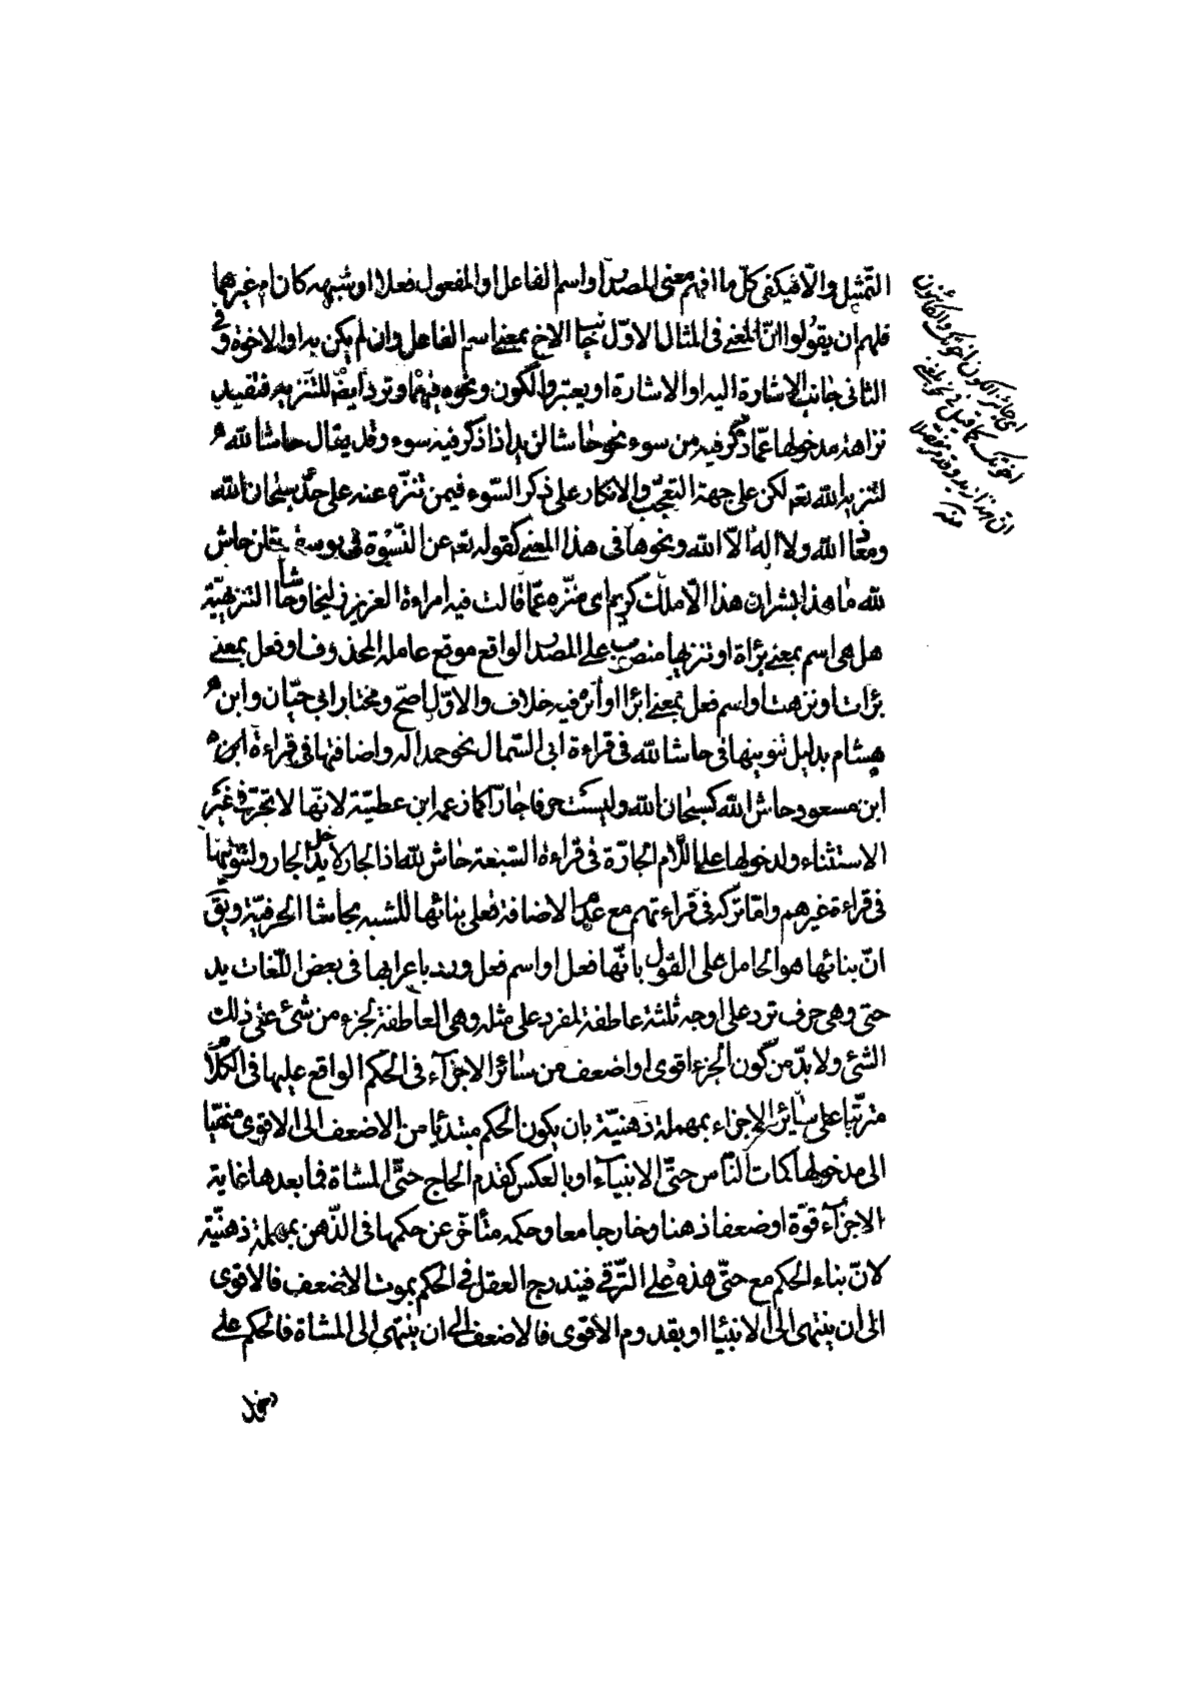 التّمثيل والّا فيكفى كلّ ما افهم معنى المصدر او اسم الفاعل او المفعول فعلا او شبهه كان ام غيرهما
فلهم ان يقولوا انّ المعنى فى المثال الاوّل جانب الاخ بمعنى اسم الفاعل وان لم يكن به او الاخوة وفى
الثانى جانب الاشارة اليه او الاشارة او يعتبروا الكون ونحوه فيهما وترد ايضا للتنزيه فتفيد
نزاهة مدخولها عمّا ذكر فيه من سوء نحو حاشا لزيد اذا ذكر فيه سوء وقد يقال حاشا لله
لتنزيه الله تعه لكن على جهة التعجّب والانكار على ذكر السّوء فيمن تنزّه عنه على حدّ سبحان الله
ومعاذ الله ولا اله الّا الله ونحوها فى هذا المعنى كقوله تعه عن النّسوة فى يوسف قلن حاش
لله ما هذا بشرا ان هذا الّا ملك كريم اى منزّه عمّا قالت فيه امراءة العزيز زليخا وحاشا التنزيهيّة
هل هى اسم بمعنى براة او تنزيها منصوب على المصدر الواقع موقع عامله المحذوف او فعل بمعنى
برّات او نزهت او اسم فعل بمعنى ابرّا او فيه خلاف والاوّل اصحّ ومختار ابى حيّان وابن
هشام بدليل تنوينها فى حاشا لله فى قراءة ابى السّمال نحو حمدا له واضافتها فى قراءة ابن
ابن مسعود حاش الله كسبحان الله وليست حرفا جارّا كما زعمه ابن عطيّة لانّها لا تجرّ فى غير
الاستثناء ولدخولها على اللّام الجارّة فى قراءة السّبعة حاش لله اذ الجار لا يدخل الجار ولتنوينها
فى قراءة غيرهم وامّا تركه فى قراءتهم مع عدم الاضافة فعلى بنائها للشبه بحاشا الحرفيّة ويق
انّ بنائها هو الحامل على القول بانّها فعل او اسم فعل ورد باعرابها فى بعض اللّغات
حتى وهى حرف ترد على اوجه ثلثة عاطفة لمفرد على مثله وهى العاطفة لجزء من شئ على ذلك
الشئ ولا بدّ من كون الجزء اقوى او اضعف من سائر الاجزاء فى الحكم الواقع عليها فى الكلام
مترتّبا على سائر الاجزاء بمهملة ذهنيّة بان يكون الحكم مبتدئا من الاضعف الى الاقوى منتهيا
الى مدخولها كمات النّاس حتّى الانبياء او بالعكس كقدم الحاج حتّى المشاة فما بعدها غاية
الاجزاء قوّة او ضعفا ذهنا وخارجا معا وحكمه متأخّر عن حكمها فى الذّهن بمهملة ذهنيّة
لانّ بناء الحكم مع حتّى هذه على التّرقى فيندرج العقل فى الحكم بموت الاضعف فالاقوى
الى ان ينتهى الى الانبيا او بقدوم الاقوى فالاضعف الى ان ينتهى الى المشاة فالحكم على